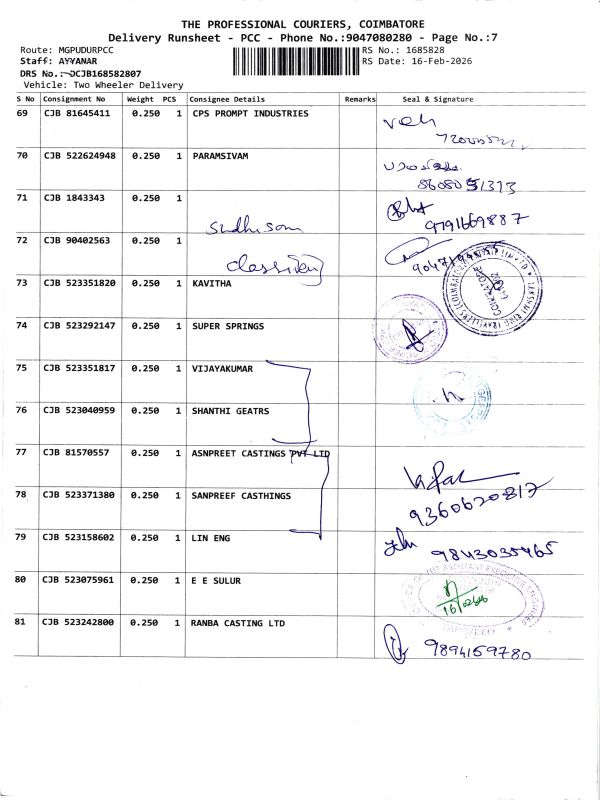 THE PROFESSIONAL COURIERS, COIMBATORE
Delivery Runsheet - PCC - Phone No.:9047080280 - Page No.:7
Route: MGPUDURPCC RS No.: 1685828
Staff: AYYANAR RS Date: 16-Feb-2026
DRS No.:-DCJB168582807
Vehicle: Two Wheeler Delivery
S No Consignment No Weight PCS Consignee Details Remarks Seal & Signature
69 CJB 81645411 0.250 1 CPS PROMPT INDUSTRIES
70 CJB 522624948 0.250 1 PARAMSIVAM
71 CJB 1843343 0.250 1
9791669887
72 CJB 90402563 0.250 1
73 CJB 523351820 0.250 1 KAVITHA
74 CJB 523292147 0.250 1 SUPER SPRINGS
75 CJB 523351817 0.250 1 VIJAYAKUMAR
76 CJB 523040959 0.250 1 SHANTHI GEATRS
77 CJB 81570557 0.250 1 ASNPREET CASTINGS PVT LTD
78 CJB 523371380 0.250 1 SANPREEF CASTHINGS
9360620817
79 CJB 523158602 0.250 1 LIN ENG
9843035465
80 CJB 523075961 0.250 1 E E SULUR
81 CJB 523242800 0.250 1 RANBA CASTING LTD
9894159780